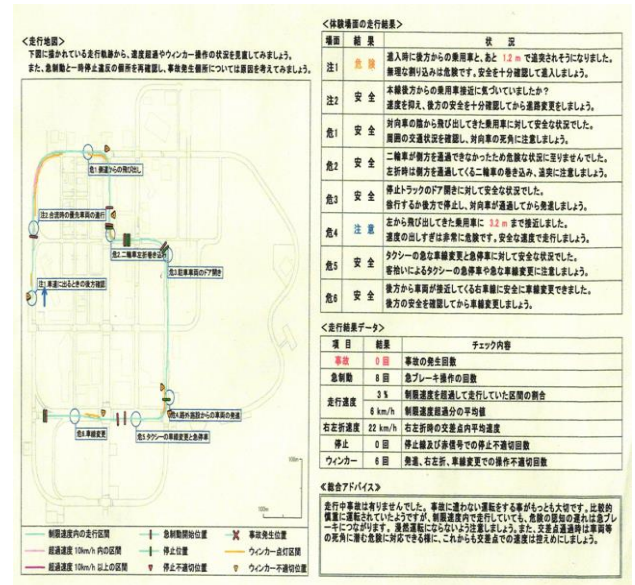 <走行地図>
下図に描かれている走行軌跡から、速度超過やウィンカー操作の状況を見直してみましょう。
また、急制動と一時停止違反の個所を再確認し、事故発生個所については原因を考えてみましょう。
危1.側道からの飛び出し
注2.合流時の優先車両の進行
危2.二輪車左折巻き込み
危3.駐車車両のドア開き
注1.車道に出るときの後方確認
危4.路外施設からの車両の発進
危6.車線変更
危5.タクシーの車線変更と急停車
100m
100m
制限速度内の走行区間
急制動開始位置
事故発生位置
超過速度 10km/h 内の区間
停止位置
ウィンカー点灯区間
超過速度 10km/h 以上の区間
停止不適切位置
ウィンカー不適切位置
<体験場面の走行結果>
場面 結 果 状 況
注1 危 険 進入時に後方からの乗用車と、あと 1.2 m で追突されそうになりました。
無理な割り込みは危険です。安全を十分確認して進入しましょう。
注2 安 全 本線後方からの乗用車接近に気づいていましたか?
速度を抑え、後方の安全を十分確認してから進路変更をしましょう。
危1 安 全 対向車の陰から飛び出してきた乗用車に対して安全な状況でした。
周囲の交通状況を確認し、対向車の死角に注意しましょう。
危2 安 全 二輪車が側方を通過できなかったため危険な状況に至りませんでした。
左折時は側方を通過してくる二輪車の巻き込み、追突に注意しましょう。
危3 安 全 停止トラックのドア開きに対して安全な状況でした。
徐行するか後方で停止し、対向車が通過してから発進しましょう。
危4 注 意 左から飛び出してきた乗用車に 3.2 m まで接近しました。
速度の出しすぎは非常に危険です。安全な速度で走行しましょう。
危5 安 全 タクシーの急な車線変更と急停車に対して安全な状況でした。
客拾いによるタクシーの急停車や急な車線変更に注意しましょう。
危6 安 全 後方から車両が接近してくる右車線に安全に車線変更できました。
後方の安全を確認してから車線変更しましょう。
<走行結果データ>
項 目 結果 チェック内容
事故 0 回 事故の発生回数
急制動 8 回 急ブレーキ操作の回数
走行速度 3 % 制限速度を超過して走行していた区間の割合
6 km/h 制限速度超過分の平均値
右左折速度 22 km/h 右左折時の交差点内平均速度
停止 0 回 停止線及び赤信号での停止不適切回数
ウィンカー 6 回 発進、右左折、車線変更での操作不適切回数
<総合アドバイス>
走行中事故は有りませんでした。事故に遭わない運転をする事がもっとも大切です。比較的
慎重に運転されていたようですが、制限速度内で走行していても、危険の認知の遅れは急ブレ
ーキにつながります。漫然運転にならないよう注意しましょう。また、交差点通過時は車両等
の死角に潜む危険に対応できる様に、これからも交差点での速度は控えめにしましょう。